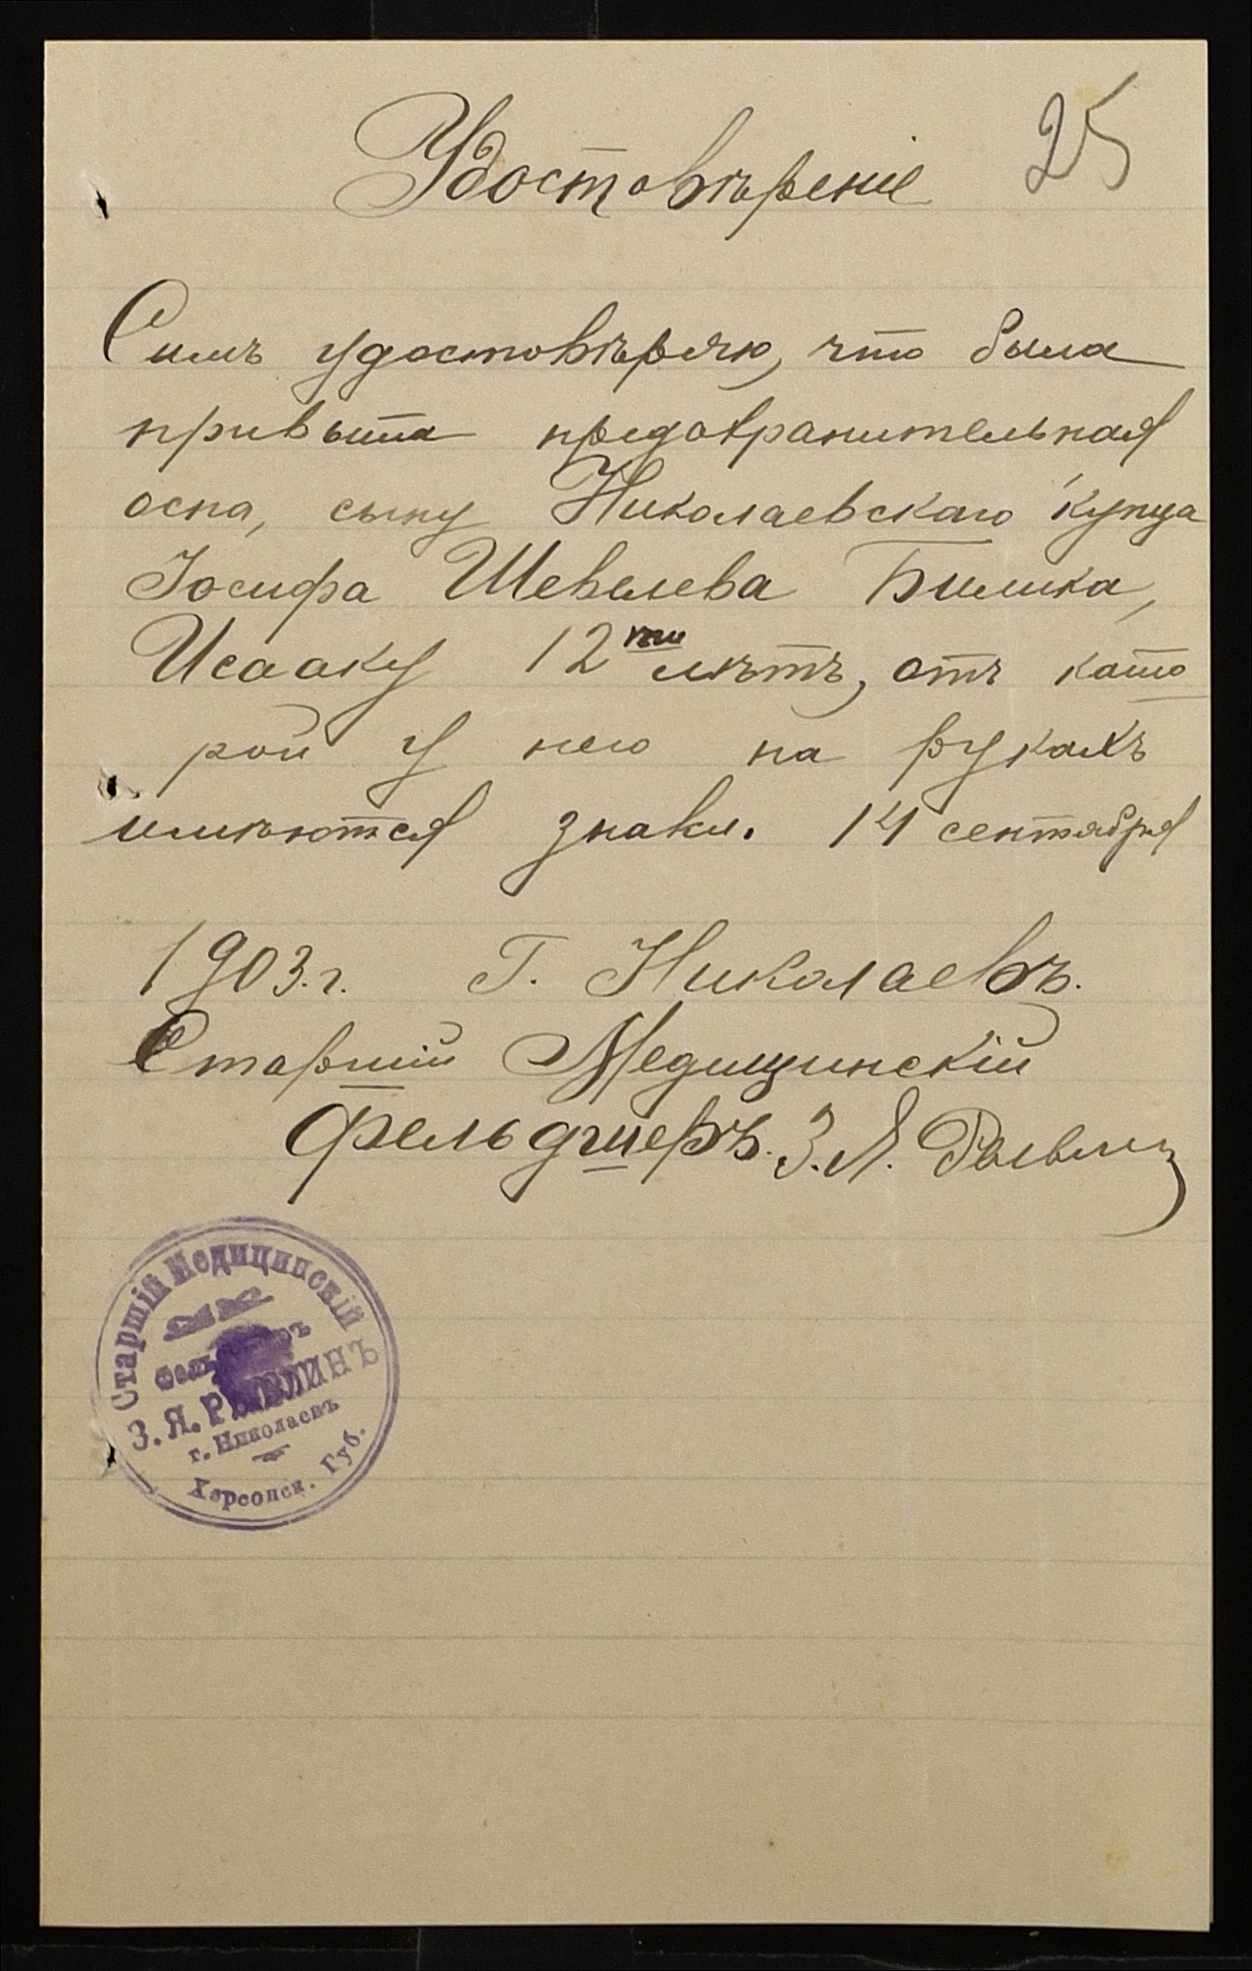 25
Удостовѣреніе
Симъ удостовѣряю, что была
привыта предохранительная
оспа, сыну Николаевскаго купца
Іосифа Шевелева Билика,
Исааку 12ти лѣтъ, отъ като
рой у него на рукахъ
имѣются знаки. 14 сентября
1903.г. Г. Николаевъ.
Старшій Медицинскій
фельдшеръ. З. Я. Рывлинъ
Старшій Медицинскій
Фельдшеръ
З. Я. РЫВЛИНЪ
г. Николаевъ
Херсонск. Губ.